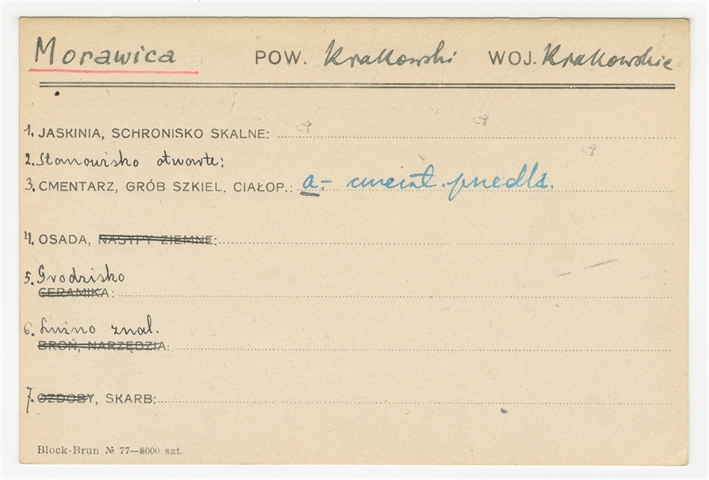 Morawica POW. Krakowski WOJ. Krakowskie
1. JASKINIA, SCHRONISKO SKALNE:
2. Stanowisko otwarte:
3. CMENTARZ, GRÓB SZKIEL, CIAŁOP.: a - cment.
4. OSADA, NASYPY ZIEMNE:
5. Grodzisko
CERAMIKA:
6. Luźno znal.
BROŃ, NARZĘDZIA:
7. OZDOBY, SKARB:
Block-Brun № 77—8000 szt.